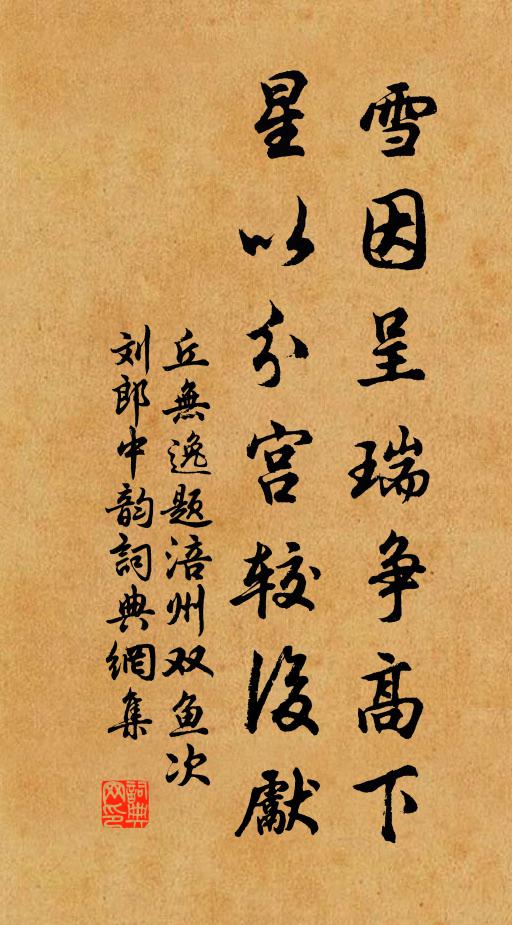 雪因呈瑞争高下
星以分宫较後獻
丘無逸题涪州双鱼次
刘郎中韵詞典網集
詞典
网印